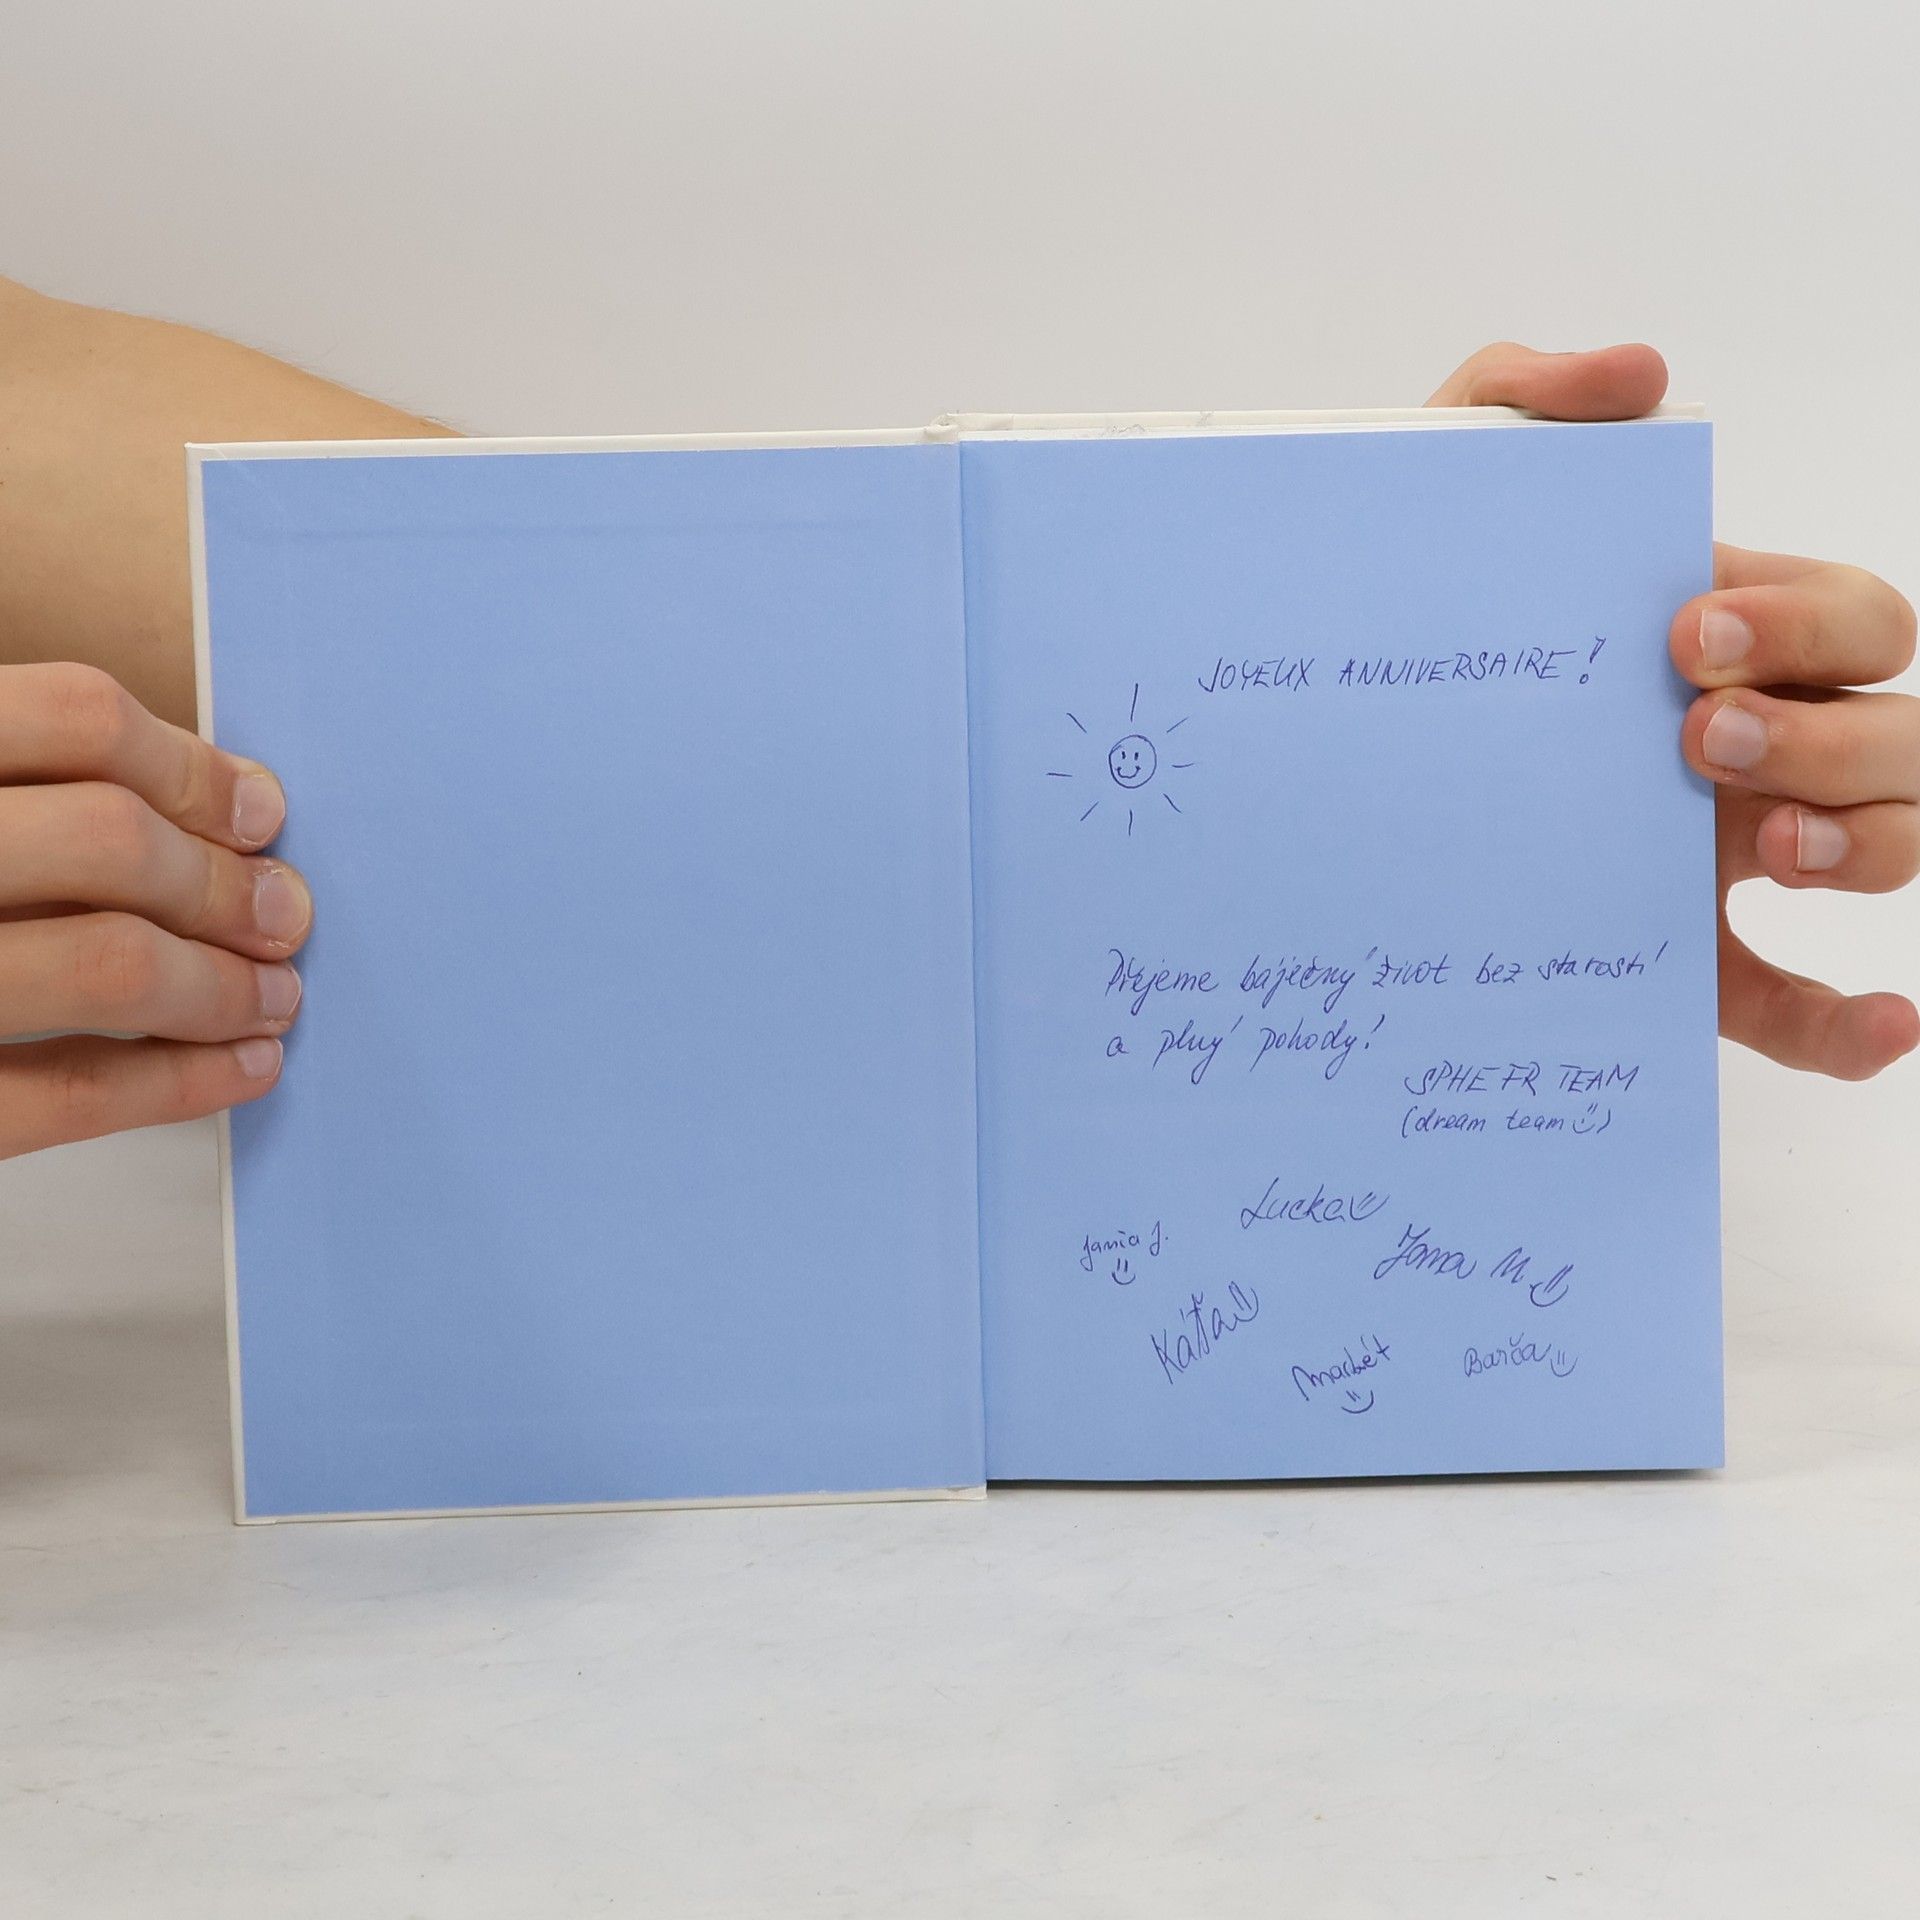 JOYEUX ANNIVERSAIRE!
Přejeme báječný život bez starostí
a plný pohody!
SPHE FR TEAM
(dream team)
Lucka
Jana J.
Jana M.
Káťa
Markét
Barča